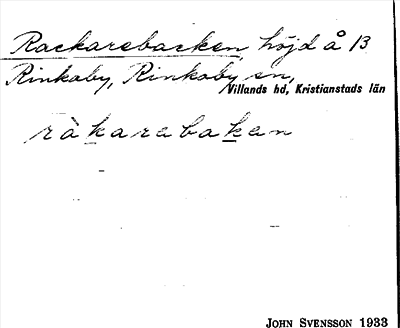 Rackarebacken, höjd å 13
Rinkaby, Rinkaby sn,
Villands hd, Kristianstads län
ràkarebaken
JOHN SVENSSON 1933